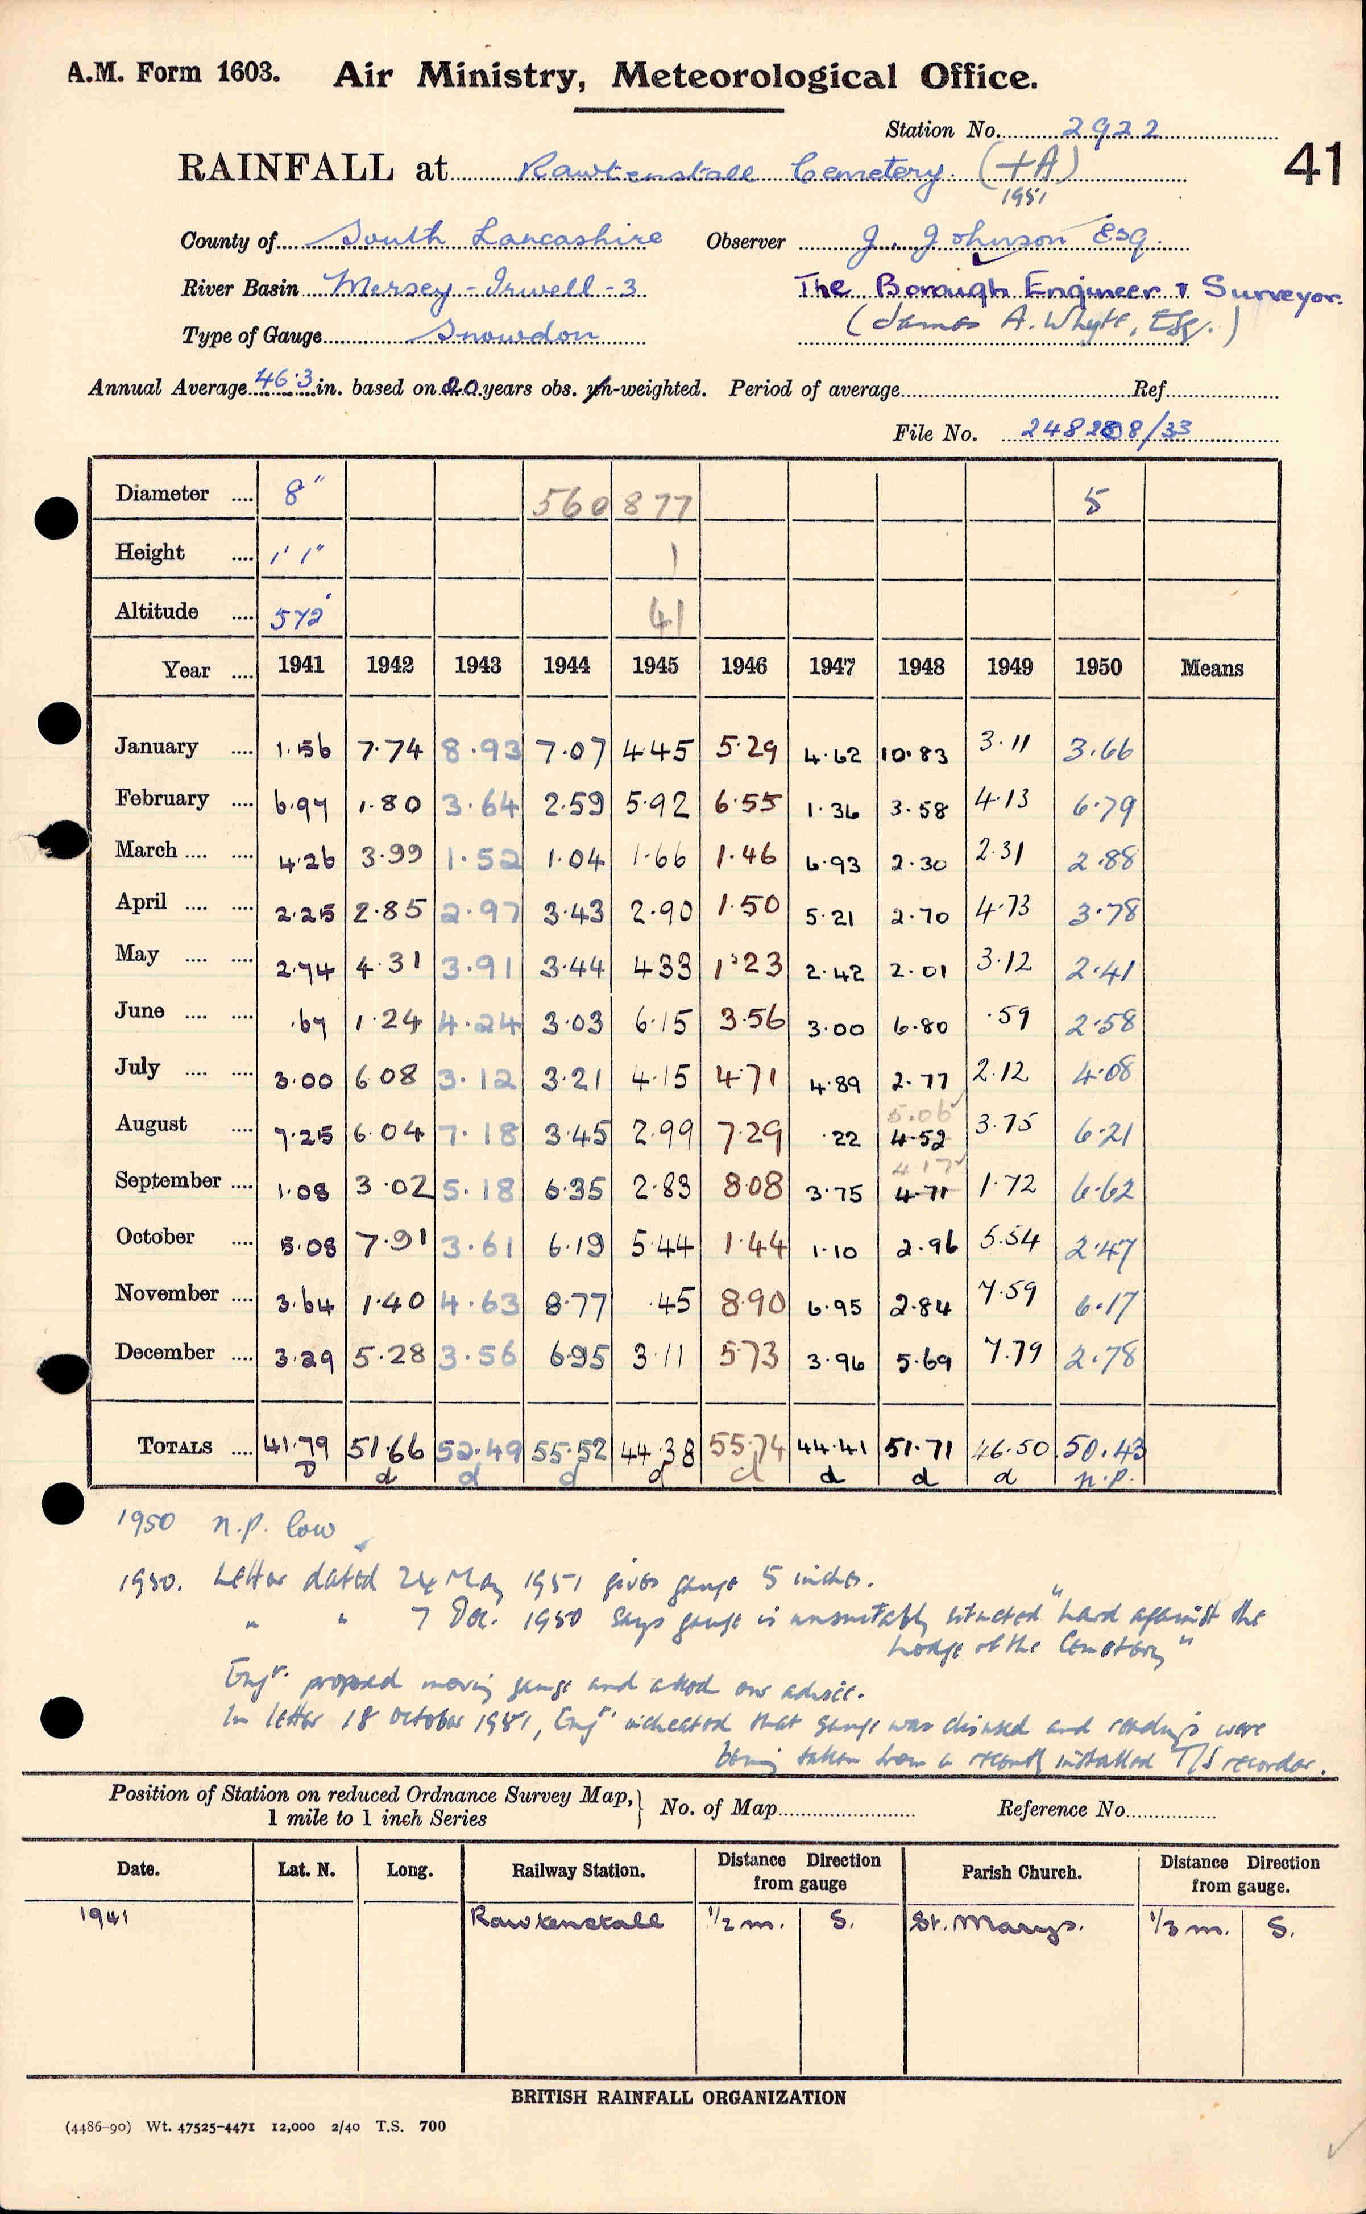 A.M. Form 1603. Air Ministry, Meteorological Office.
Station No. 2922
41
RAINFALL at Rawtenstall Cemetery. (+A)
1951
County of South Lancashire Observer J. Johnson Esq.
River Basin Mersey - Irwell - 3 The Borough Engineer & Surveyor.
Type of Gauge Snowdon (James A. Whyte, Esq.)
Annual Average 46.3 in. based on 20 years obs. un-weighted. Period of average Ref.
File No. 248208/33
Diameter 8" 560 877 5
Height 1' 1" 1
Altitude 572' 41
Year 1941 1942 1943 1944 1945 1946 1947 1948 1949 1950 Means
January 1.56 7.74 8.93 7.07 4.45 5.29 4.62 10.83 3.11 3.66
February 6.97 1.80 3.64 2.59 5.92 6.55 1.36 3.58 4.13 6.79
March 4.26 3.99 1.52 1.04 1.66 1.46 6.93 2.30 2.31 2.88
April 2.25 2.85 2.97 3.43 2.90 1.50 5.21 2.70 4.73 3.78
May 2.74 4.31 3.91 3.44 4.33 1.23 2.42 2.01 3.12 2.41
June .67 1.24 4.24 3.03 6.15 3.56 3.00 6.80 .59 2.58
July 3.00 6.08 3.12 3.21 4.15 4.71 4.89 2.77 2.12 4.08
5.06✓
August 7.25 6.04 7.18 3.45 2.99 7.29 .22 4.52 3.75 6.21
4.17✓
September 1.08 3.02 5.18 6.35 2.83 8.08 3.75 4.71 1.72 6.62
October 5.08 7.91 3.61 6.19 5.44 1.44 1.10 2.96 5.54 2.47
November 3.64 1.40 4.63 8.77 .45 8.90 6.95 2.84 7.59 6.17
December 3.29 5.28 3.56 6.95 3.11 5.73 3.96 5.69 7.79 2.78
TOTALS 41.79 51.66 52.49 55.52 44.38 55.74 44.41 51.71 46.50 50.43
D d d d d d d d d n.p.
1950 n.p. low
1950. Letter dated 24 May 1951 gives gauge 5 inches.
" " 7 Dec. 1950 says gauge is unsuitably situated "hard against the
Lodge of the Cemetery"
Engr. proposed moving gauge and asked our advice.
In letter 18 October 1951, Engr. indicated that gauge was disused and readings were
being taken from a recently installed T/S recorder.
Position of Station on reduced Ordnance Survey Map, 1 mile to 1 inch Series } No. of Map Reference No.
Date. Lat. N. Long. Railway Station. Distance Direction from gauge Parish Church. Distance Direction from gauge.
1941 Rawtenstall 1/2 m. S. St. Marys. 1/3 m. S.
BRITISH RAINFALL ORGANIZATION
(4486-90) Wt. 47525-4471 12,000 2/40 T.S. 700